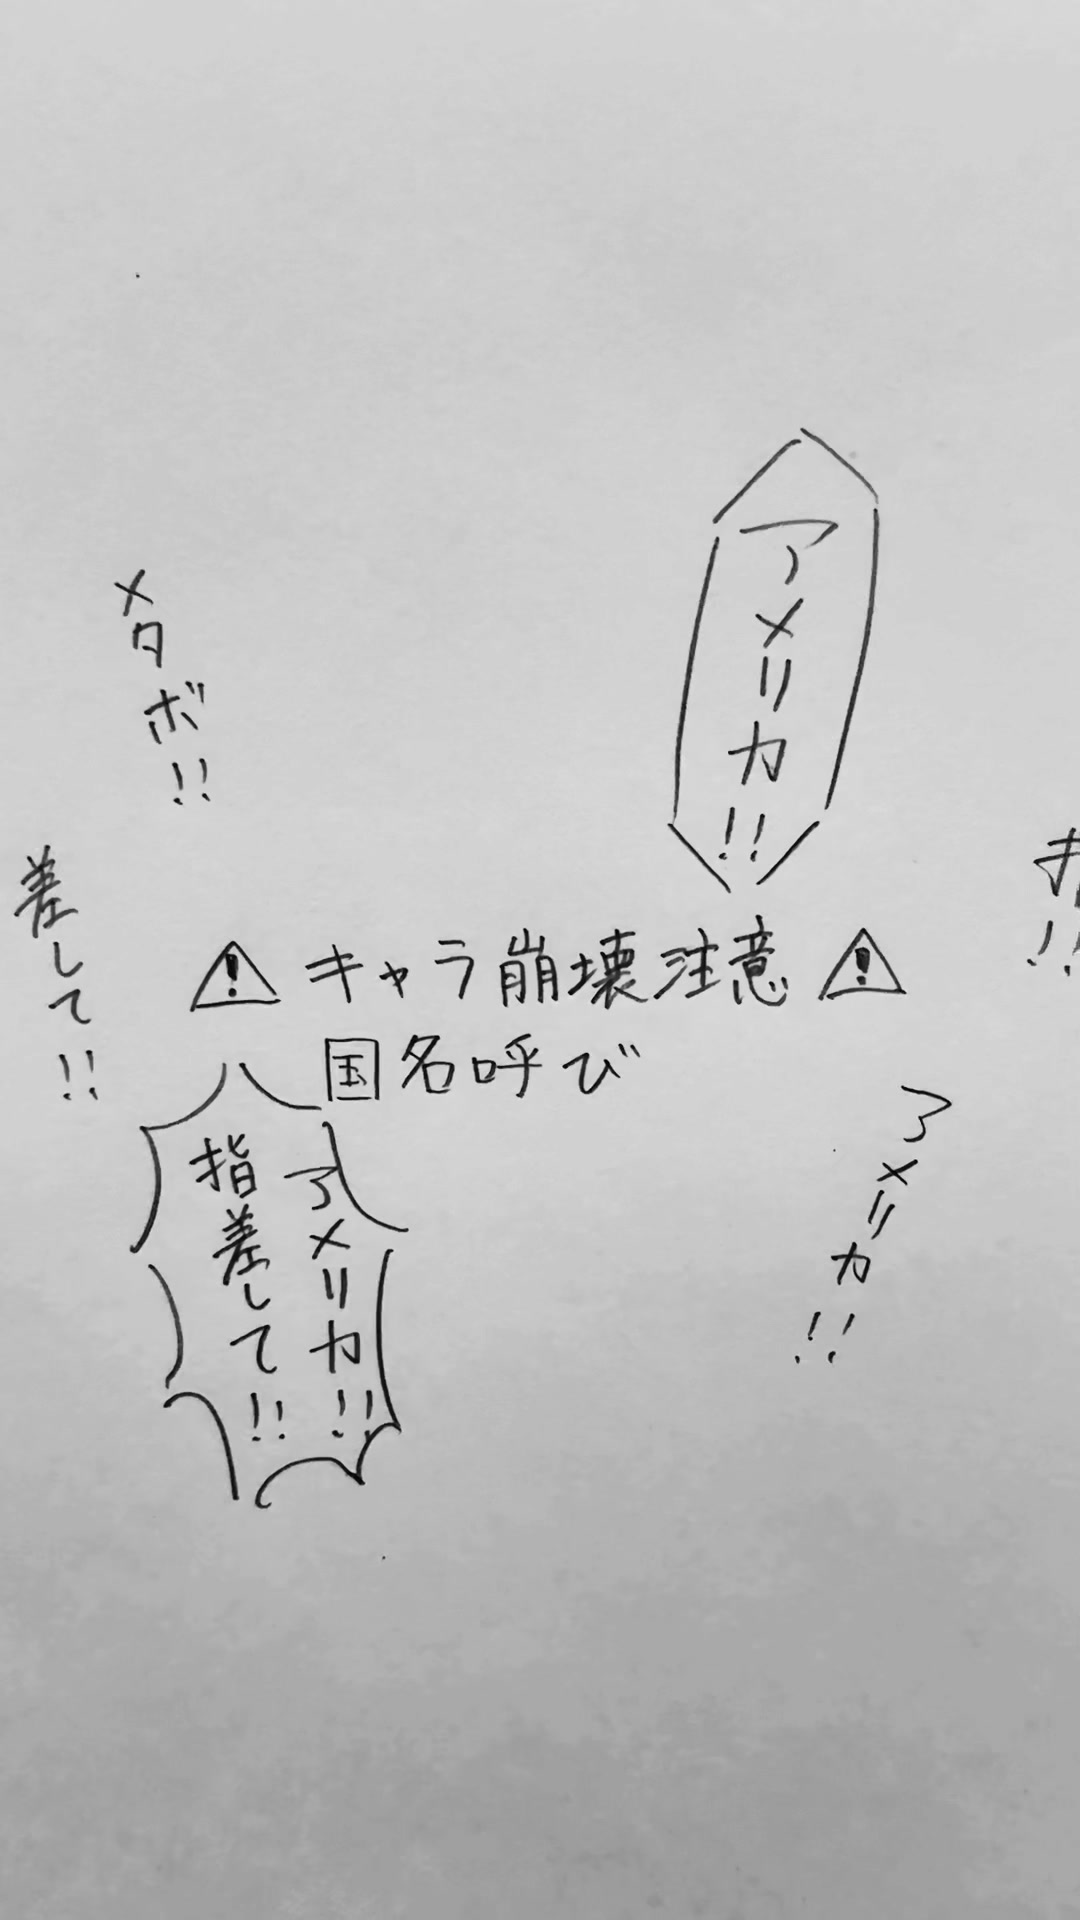 アメリカ!!
メタボ!!
差して!!
⚠キャラ崩壊注意⚠
国名呼び
アメリカ!!
指差して!!
アメリカ!!